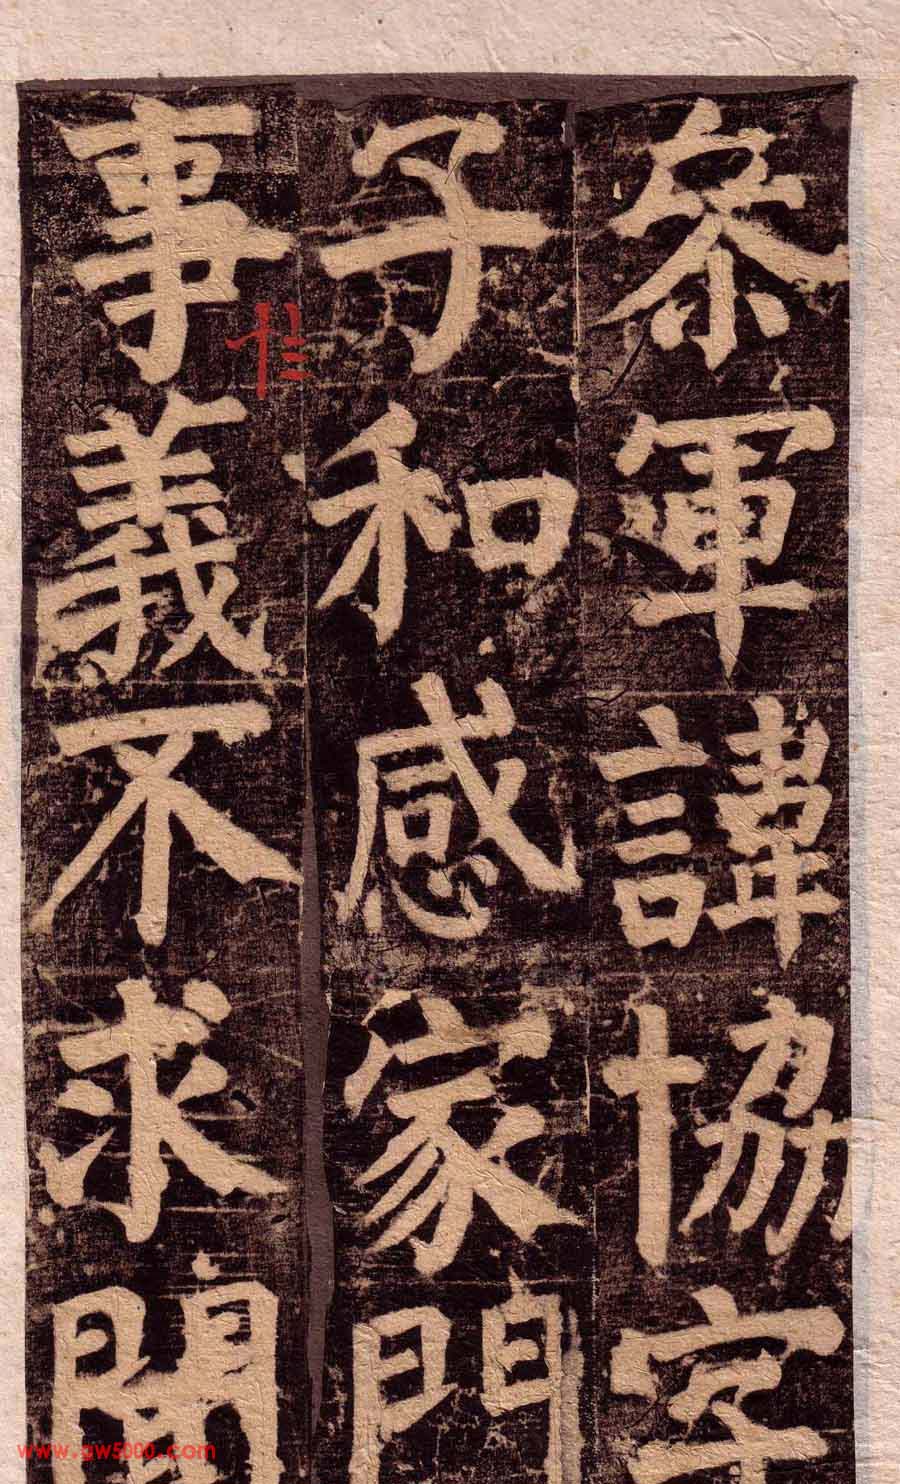 叅軍諱協字
子和感家門
事義不求聞
www.gw5000.com